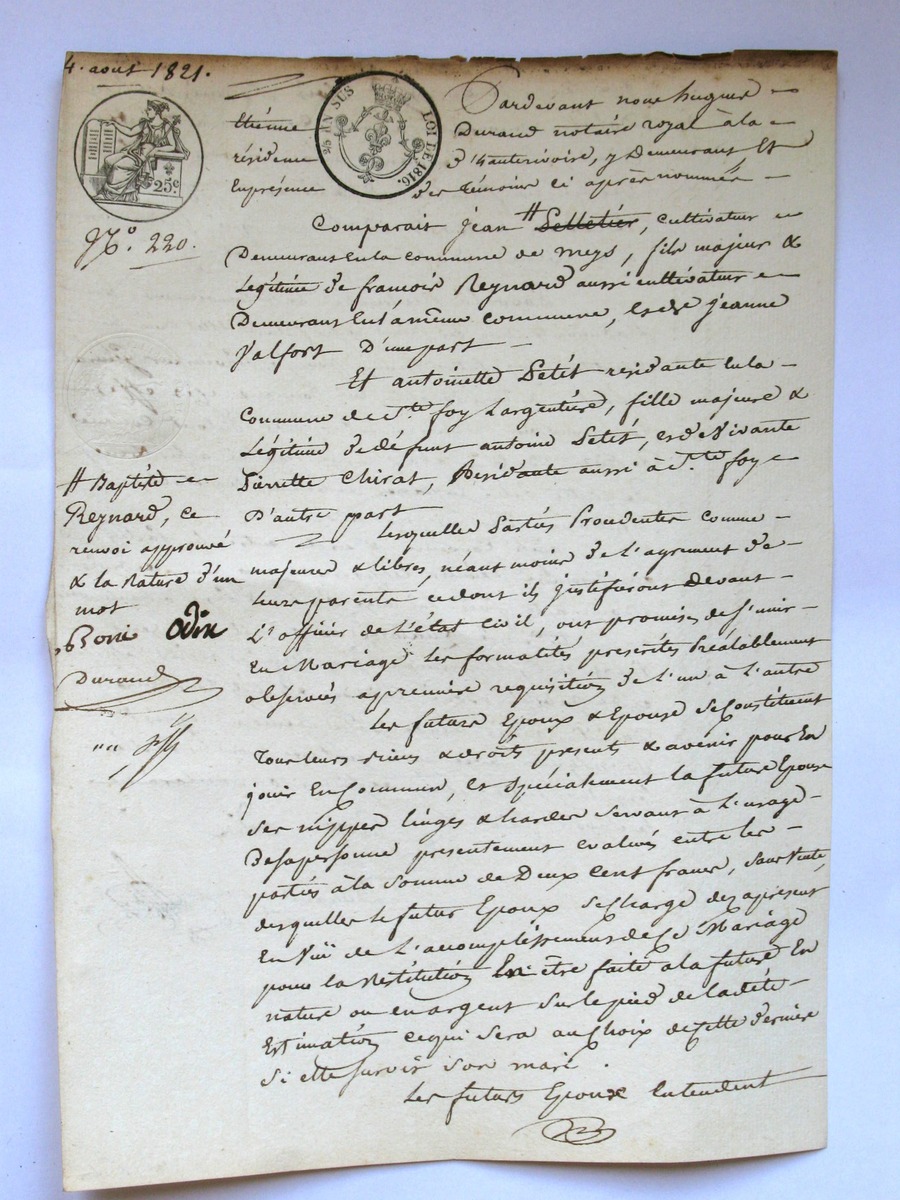 4. aout 1821.
25 EN SUS
LOI DE 1816.
25c
N.o 220.
Pardevant nous hugues
étienne Durand notaire royal à la
résidence d'hauterivoire, y Demeurant, Et
En présence des témoins ci après nommés
Comparait jean # Pelletier, cultivateur
Demeurant En la commune de meys, fils majeur &
Légitime de francois Reynard aussi cultivateur
Demeurant En la même commune, et de jeanne
Valfort D'une part
Et antoinette Petit residante En la
Commune de Ste foy Largentière, fille majeure &
Légitime de défunt antoine Petit, et de vivante
Pierrette Chirat, Residante aussi à Ste foy
D'autre part
Lesquelles Parties Procedentes comme
majeures & libres, néant moins de l'agrement de
leurs parents ce dont ils justifieront devant
L'officier de l'état civil, ont promis de s'unir
En Mariage les formalités prescrites Préalablement
observées a premiere requisition de l'un à l'autre
Les futurs Epoux & Epouse se Constituent
Tous leurs biens & droits presents & avenir pour En
jouir En Commun, et Spécialement la future Epouse
ses nippes linges & hardes servant à L'usage
De sa personne presentement evalués entre les
parties à la somme de Deux cent francs, sans vente,
desquelles le futur Epoux se charge dez apresent
En vüe de L'accomplissement de Ce Mariage
pour la restitution En être faite a la future En
nature ou en argent sur le pied de la dite
Estimation ce qui sera au Choix de Cette derniere
si elle survit son mari.
Les futurs Epoux Entendent
# Baptiste
Reynard, ce
renvoi approuvé
& la rature d'un
mot
Boni Odin
Durand